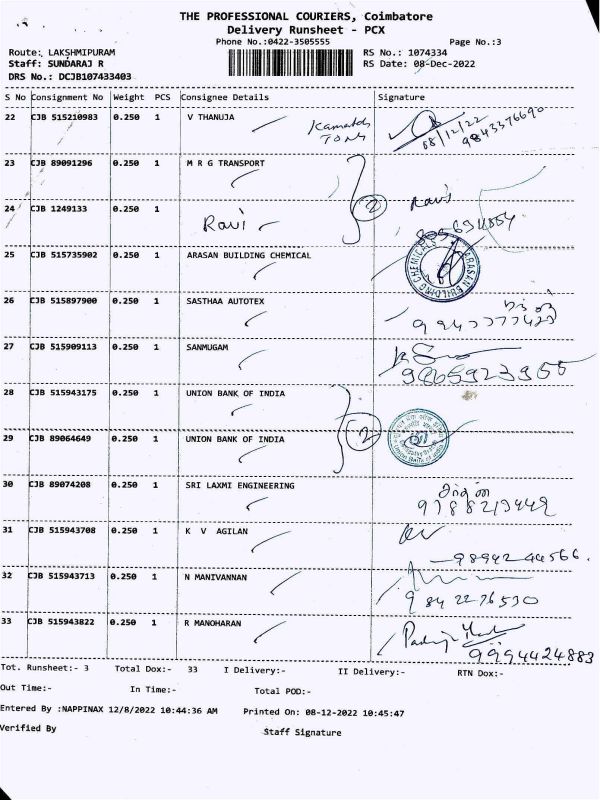 THE PROFESSIONAL COURIERS, Coimbatore
Delivery Runsheet - PCX
Phone No.:0422-3505555
Page No.:3
Route: LAKSHMIPURAM
RS No.: 1074334
Staff: SUNDARAJ R
RS Date: 08-Dec-2022
DRS No.: DCJB107433403
S No Consignment No Weight PCS Consignee Details Signature
22 CJB 515210983 0.250 1 V THANUJA
08/12/22
9843376690
23 CJB 89091296 0.250 1 M R G TRANSPORT
2
24 CJB 1249133 0.250 1 Ravi Ravi
25 CJB 515735902 0.250 1 ARASAN BUILDING CHEMICAL
ARASAN BUILDING CHEMICAL
26 CJB 515897900 0.250 1 SASTHAA AUTOTEX
27 CJB 515909113 0.250 1 SANMUGAM
9865923955
28 CJB 515943175 0.250 1 UNION BANK OF INDIA
2
29 CJB 89064649 0.250 1 UNION BANK OF INDIA
30 CJB 89074208 0.250 1 SRI LAXMI ENGINEERING
31 CJB 515943708 0.250 1 K V AGILAN
9894244566.
32 CJB 515943713 0.250 1 N MANIVANNAN
9842276530
33 CJB 515943822 0.250 1 R MANOHARAN
9994424883
Tot. Runsheet:- 3 Total Dox:- 33 I Delivery:- II Delivery:- RTN Dox:-
Out Time:- In Time:- Total POD:-
Entered By :NAPPINAX 12/8/2022 10:44:36 AM Printed On: 08-12-2022 10:45:47
Verified By Staff Signature